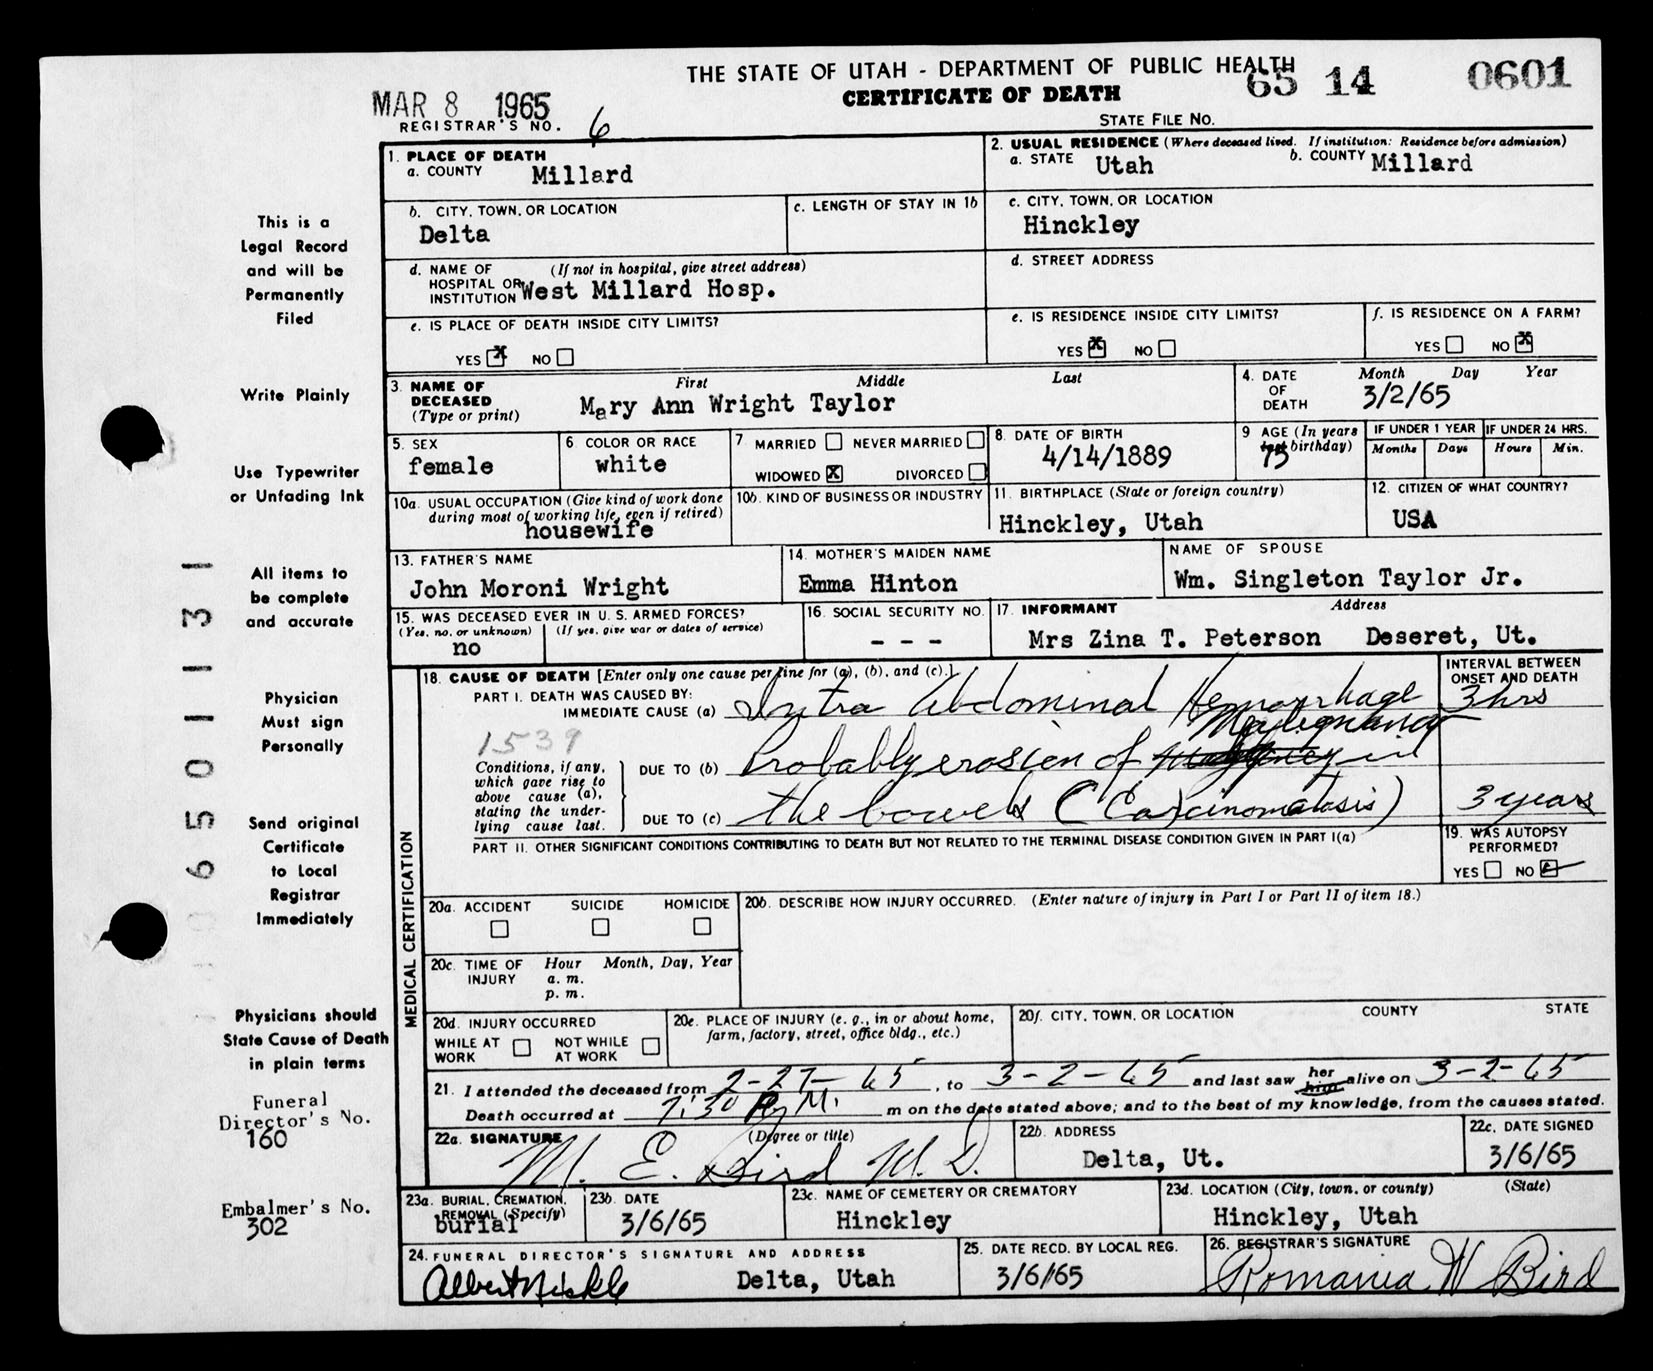 THE STATE OF UTAH - DEPARTMENT OF PUBLIC HEALTH
CERTIFICATE OF DEATH
65 14 0601
STATE FILE NO.
MAR 8 1965
REGISTRAR'S NO. 6
1. PLACE OF DEATH
a. COUNTY Millard
2. USUAL RESIDENCE (Where deceased lived. If institution: Residence before admission)
a. STATE Utah b. COUNTY Millard
b. CITY, TOWN, OR LOCATION
Delta
c. LENGTH OF STAY IN 1b
c. CITY, TOWN, OR LOCATION
Hinckley
d. NAME OF (If not in hospital, give street address)
HOSPITAL OR
INSTITUTION West Millard Hosp.
d. STREET ADDRESS
e. IS PLACE OF DEATH INSIDE CITY LIMITS?
YES X NO
e. IS RESIDENCE INSIDE CITY LIMITS?
YES X NO
f. IS RESIDENCE ON A FARM?
YES NO X
3. NAME OF DECEASED
(Type or print)
First Middle Last
Mary Ann Wright Taylor
4. DATE OF DEATH
Month Day Year
3/2/65
5. SEX
female
6. COLOR OR RACE
white
7 MARRIED NEVER MARRIED
WIDOWED X DIVORCED
8. DATE OF BIRTH
4/14/1889
9 AGE (In years
last birthday)
75
IF UNDER 1 YEAR
Months Days
IF UNDER 24 HRS.
Hours Min.
10a. USUAL OCCUPATION (Give kind of work done
during most of working life, even if retired)
housewife
10b. KIND OF BUSINESS OR INDUSTRY
11. BIRTHPLACE (State or foreign country)
Hinckley, Utah
12. CITIZEN OF WHAT COUNTRY?
USA
13. FATHER'S NAME
John Moroni Wright
14. MOTHER'S MAIDEN NAME
Emma Hinton
NAME OF SPOUSE
Wm. Singleton Taylor Jr.
15. WAS DECEASED EVER IN U.S. ARMED FORCES?
(Yes, no, or unknown) (If yes, give war or dates of service)
no
16. SOCIAL SECURITY NO.
- - -
17. INFORMANT Address
Mrs Zina T. Peterson Deseret, Ut.
MEDICAL CERTIFICATION
18. CAUSE OF DEATH [Enter only one cause per line for (a), (b), and (c).]
INTERVAL BETWEEN
ONSET AND DEATH
PART I. DEATH WAS CAUSED BY:
IMMEDIATE CAUSE (a) Intra Abdominal Hemorrhage 3 hrs
1539
Malignancy
Conditions, if any,
which gave rise to
above cause (a),
stating the under-
lying cause last.
DUE TO (b) Probably erosion of in
DUE TO (c) the bowels (Carcinomatosis) 3 years
PART II. OTHER SIGNIFICANT CONDITIONS CONTRIBUTING TO DEATH BUT NOT RELATED TO THE TERMINAL DISEASE CONDITION GIVEN IN PART I(a)
19. WAS AUTOPSY
PERFORMED?
YES NO
20a. ACCIDENT SUICIDE HOMICIDE
20b. DESCRIBE HOW INJURY OCCURRED. (Enter nature of injury in Part I or Part II of item 18.)
20c. TIME OF INJURY
Hour Month, Day, Year
a. m.
p. m.
20d. INJURY OCCURRED
WHILE AT WORK NOT WHILE AT WORK
20e. PLACE OF INJURY (e. g., in or about home,
farm, factory, street, office bldg., etc.)
20f. CITY, TOWN, OR LOCATION COUNTY STATE
21. I attended the deceased from 2-27-65, to 3-2-65 and last saw her him alive on 3-2-65
Death occurred at 7:30 P.M. m on the date stated above; and to the best of my knowledge, from the causes stated.
22a. SIGNATURE (Degree or title)
M. E. Bird M. D.
22b. ADDRESS
Delta, Ut.
22c. DATE SIGNED
3/6/65
23a. BURIAL, CREMATION,
REMOVAL (Specify)
burial
23b. DATE
3/6/65
23c. NAME OF CEMETERY OR CREMATORY
Hinckley
23d. LOCATION (City, town, or county) (State)
Hinckley, Utah
24. FUNERAL DIRECTOR'S SIGNATURE AND ADDRESS
Albert Delta, Utah
25. DATE RECD. BY LOCAL REG.
3/6/65
26. REGISTRAR'S SIGNATURE
Romania W Bird
This is a
Legal Record
and will be
Permanently
Filed
Write Plainly
Use Typewriter
or Unfading Ink
All items to
be complete
and accurate
Physician
Must sign
Personally
Send original
Certificate
to Local
Registrar
Immediately
Physicians should
State Cause of Death
in plain terms
Funeral
Director's No.
160
Embalmer's No.
302